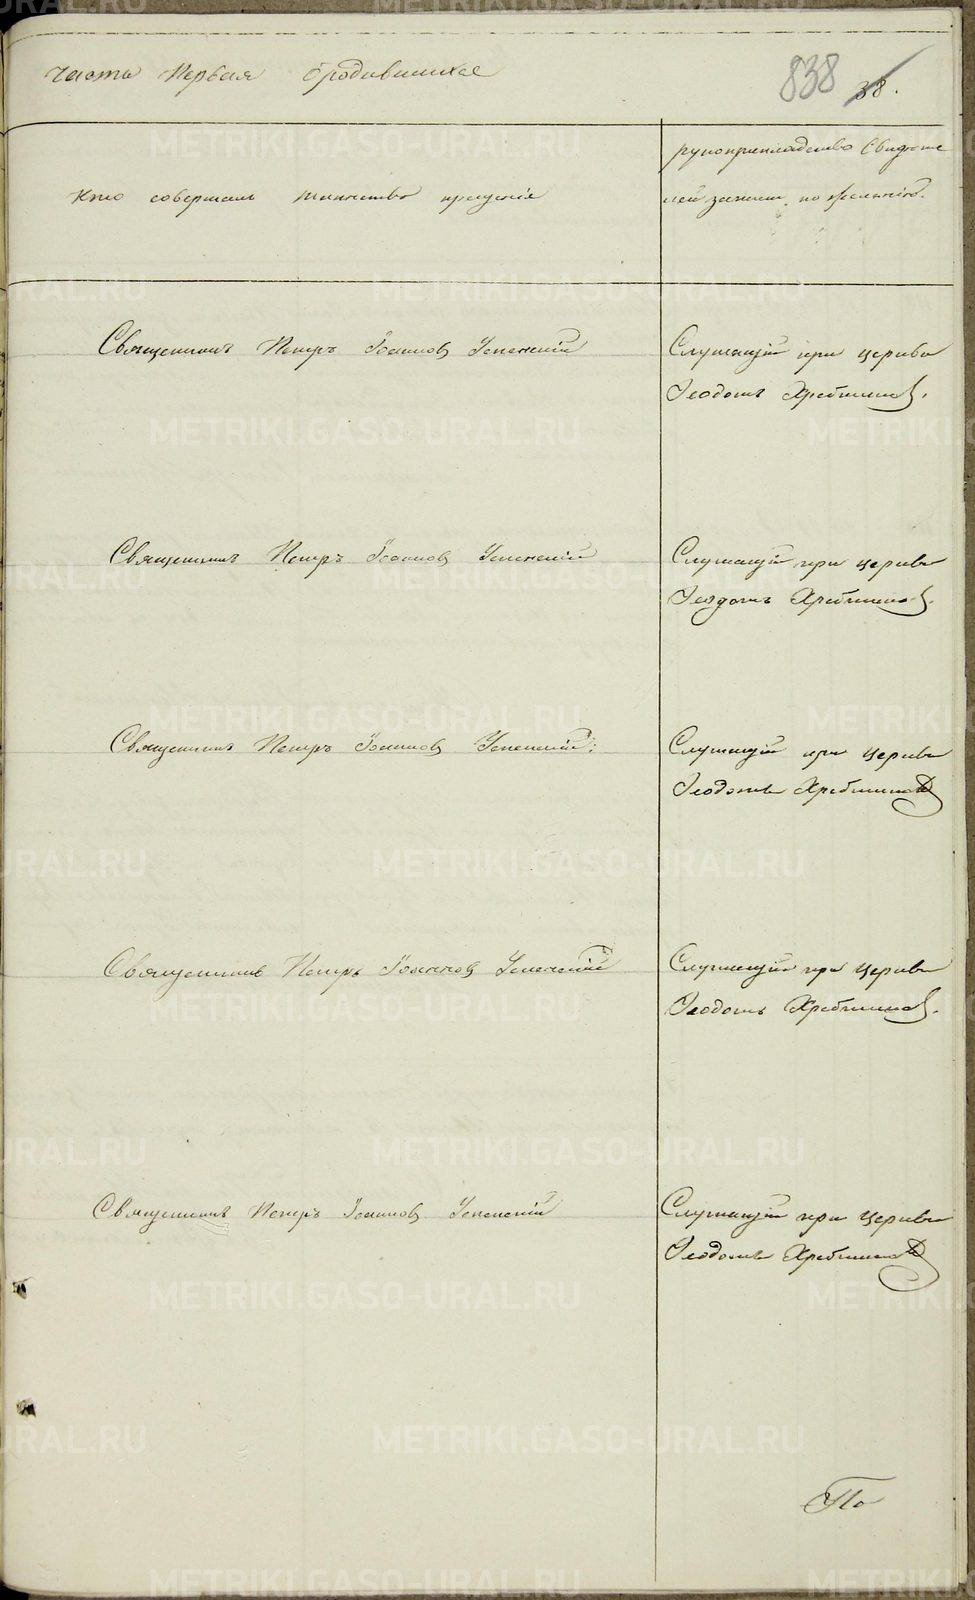 Часть Первая о родившихся
838 38.
Кто совершалъ таинство крещенія
рукоприкладство свидѣте
лей записи по желанію.
Священникъ Петръ Іоанновъ Успенскій
Служащій при церкви
Ѳеодотъ Хребтиковъ.
Священникъ Петръ Іоанновъ Успенскій
Служащій при церкви
Ѳеодотъ Хребтиковъ.
Священникъ Петръ Іоанновъ Успенскій
Служащій при церкви
Ѳеодотъ Хребтиковъ
Священникъ Петръ Іоанновъ Успенскій
Служащій при церкви
Ѳеодотъ Хребтиковъ.
Священникъ Петръ Іоанновъ Успенскій
Служащій при церкви
Ѳеодотъ Хребтиковъ
По
METRIKI.GASO-URAL.RU